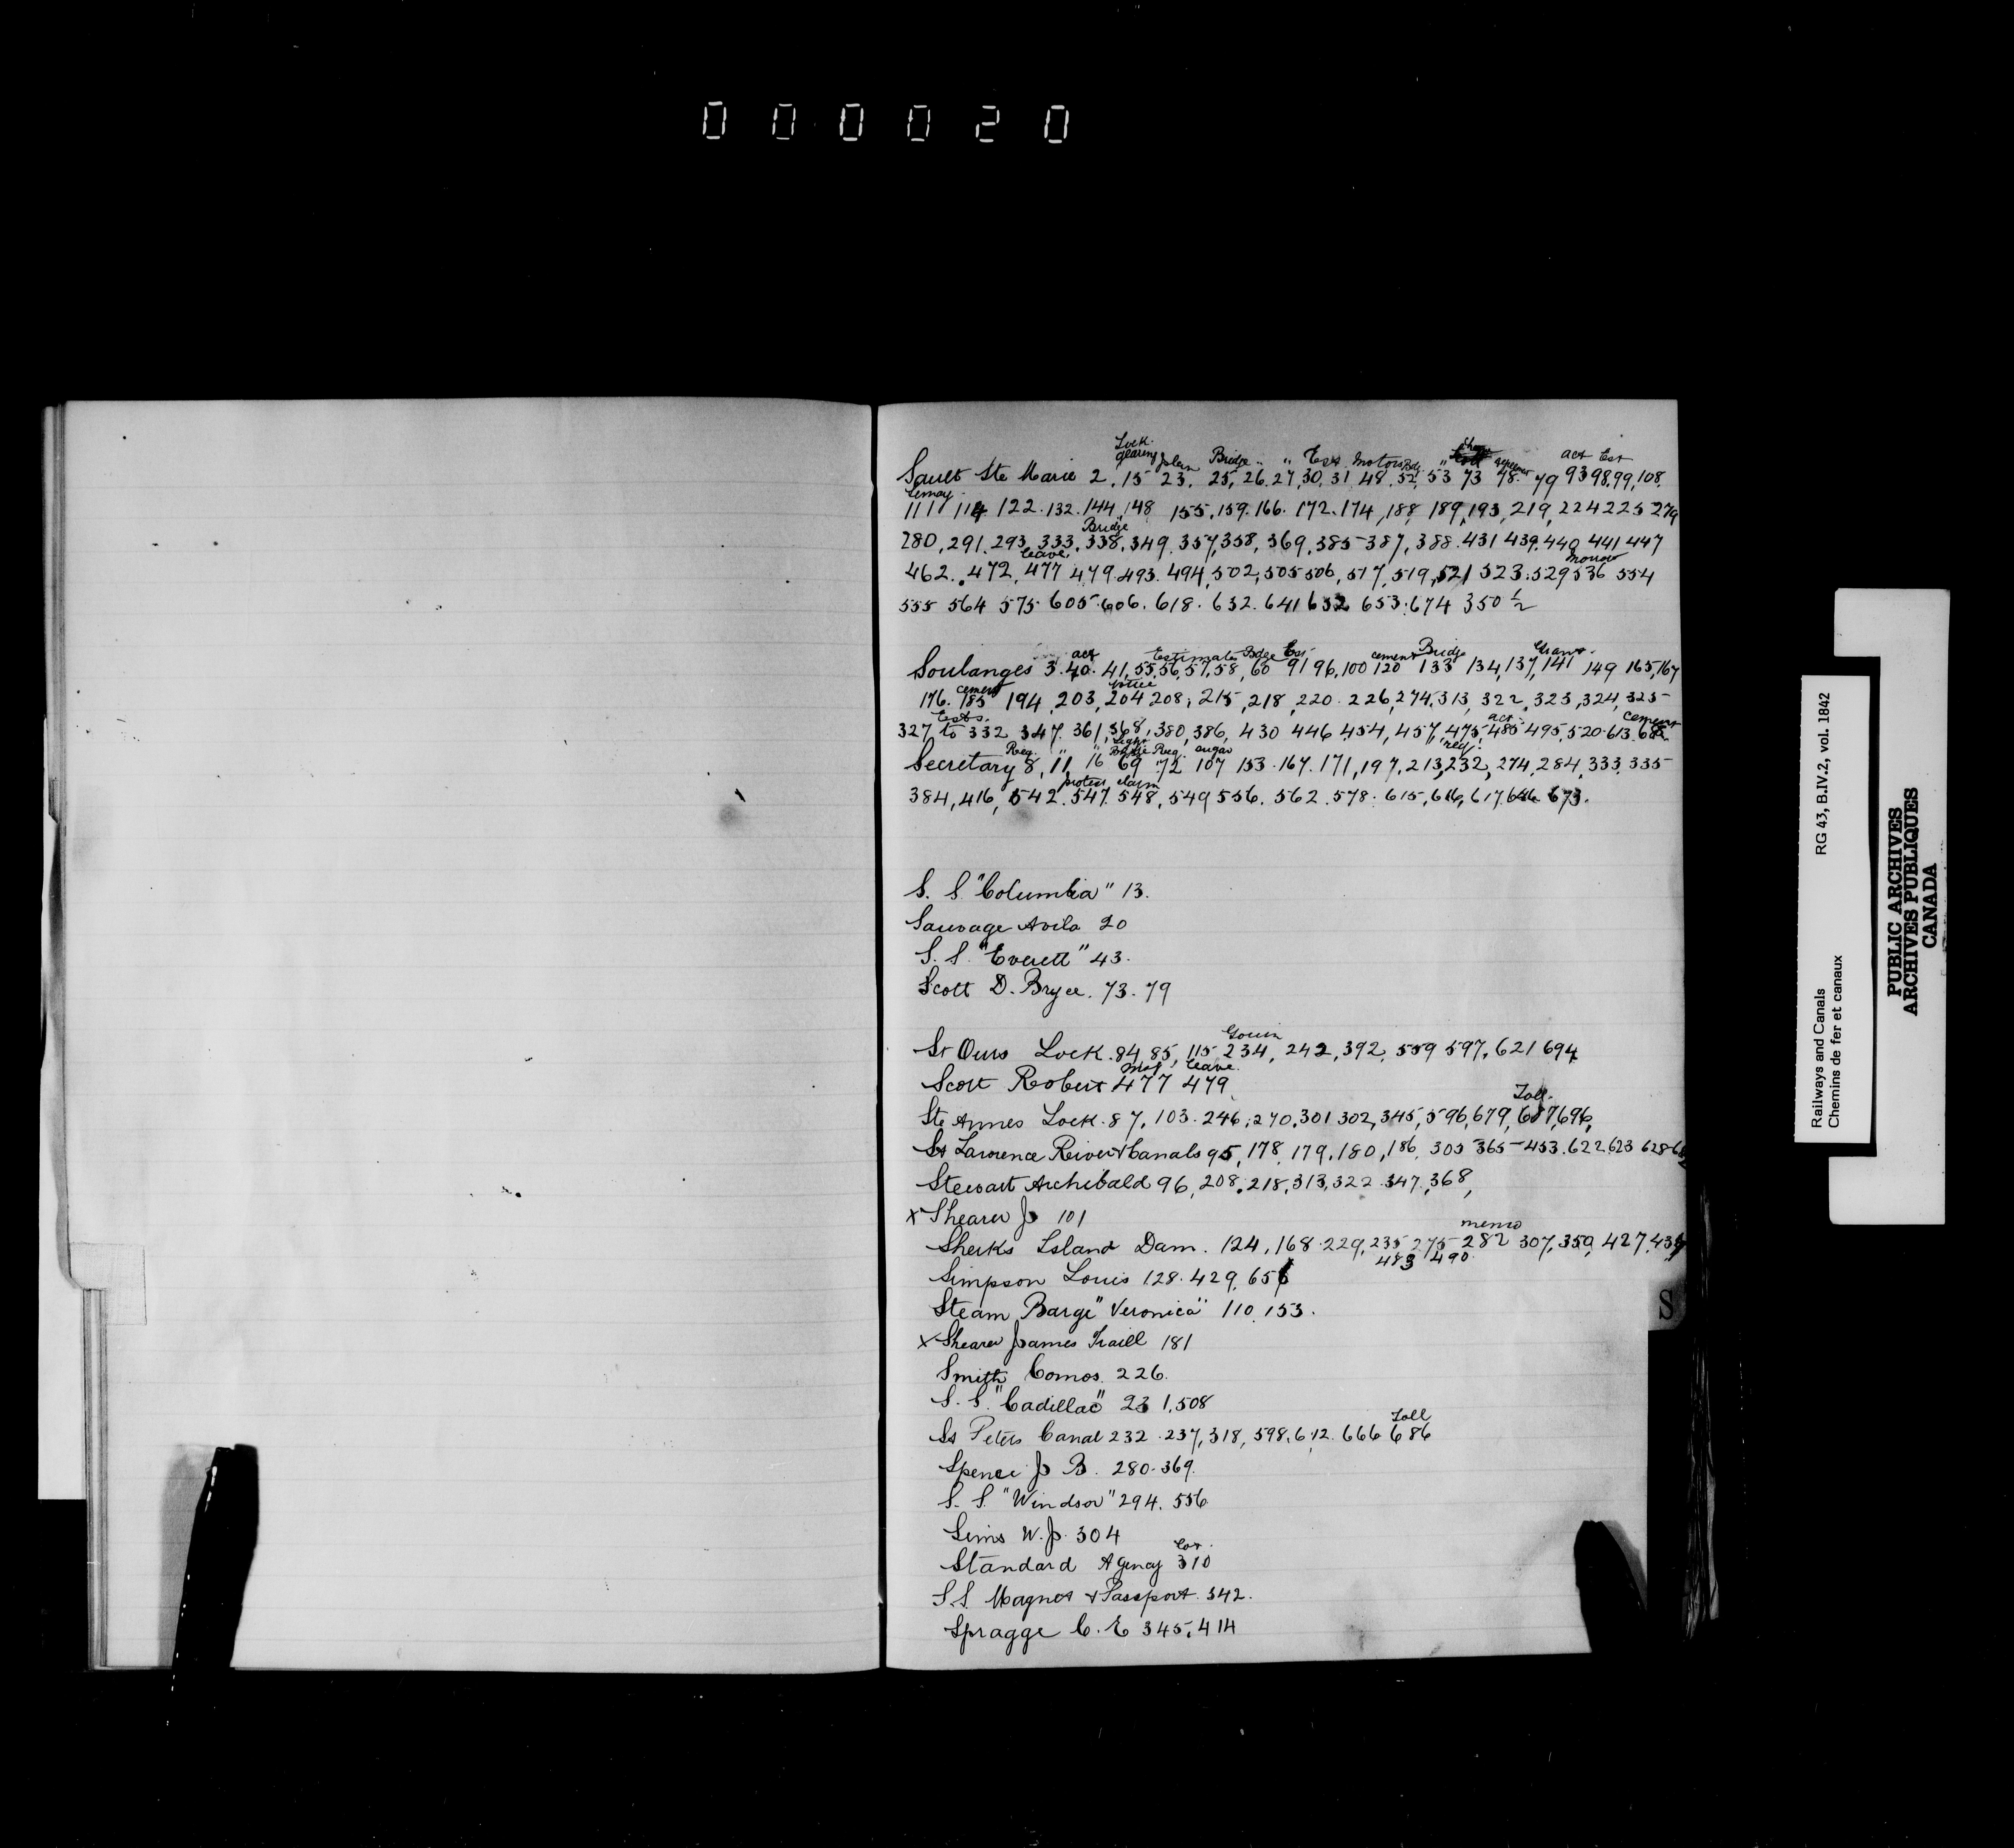 000020
Lock
gearing plan Bridge " " Est Motors Bdg " act Est
Sault Ste Marie 2, 15 23, 25, 26, 27, 30, 31, 48, 52, 53 73 78. 79 93 98, 99, 108,
Lemay
111 114 122. 132. 144, 148 155, 159. 166. 172. 174, 188, 189, 193, 219, 224 225 279
Bridge
280, 291, 293, 333, 338, 349, 357, 358, 369, 385 387, 388. 431 439, 440, 441 447
leave
462. 472, 477 479. 493. 494, 502, 505 506, 517, 519, 521 523. 529 536 554
555 564 575 605. 606. 618. 632. 641 652 653. 674 350 ½
act Estimate Bdge Est cement Bridge
Soulanges 3. 40. 41, 55, 56, 57, 58, 60 91 96, 100 120 133 134, 137, 141 149 165, 167
cement
176. 185 194, 203, 204 208, 215, 218, 220. 226, 274, 313, 322, 323, 324, 325
tests. act cement
327 to 332 347. 361, 368, 380, 386, 430 446 454, 457, 475, 485 495, 520. 613.
Req. " " Light Bridge Req. req.
Secretary 8, 11, 16 69 72 107 153. 167. 171, 197, 213, 232, 274, 284, 333, 335
protest claim
384, 416, 542. 547. 548, 549 556. 562. 578. 615, 616, 617. 646 673.
S. S. "Columbia" 13.
Sauvage Avila 20
S. S. "Everett" 43.
Scott D. Bryce. 73. 79
Gouin
St Ours Lock. 84, 85, 115 234, 242, 392, 559 597, 621 694
leave.
Scott Robert 477 479
Toll.
Ste Annes Lock. 87, 103. 246, 270, 301 302, 345, 596, 679, 687, 696,
St Lawrence River & Canals 95, 178, 179, 180, 186, 305 365 453. 622 623 628
Stewart Archibald 96, 208, 218, 313, 322. 347, 368,
x Shearer J 101
memo
Sherks Island Dam. 124, 168. 229, 235 275 282 307, 359, 427,
483 490
Simpson Louis 128. 429, 656
Steam Barge "Veronica" 110, 153.
x Shearer James Traill 181
Smith Comos. 226.
S. S. "Cadillac" 231, 508
Toll
St Peters Canal 232. 237, 318, 598, 612. 666 686
Spence J B. 280. 369.
S. S. "Windsor" 294. 556
Sims W. J. 304
Standard Agency 310
S. S. Magnet & Passport. 342.
Spragge C. E 345, 414
S
Railways and Canals RG 43, B.IV.2, vol. 1842
Chemins de fer et canaux
PUBLIC ARCHIVES
ARCHIVES PUBLIQUES
CANADA